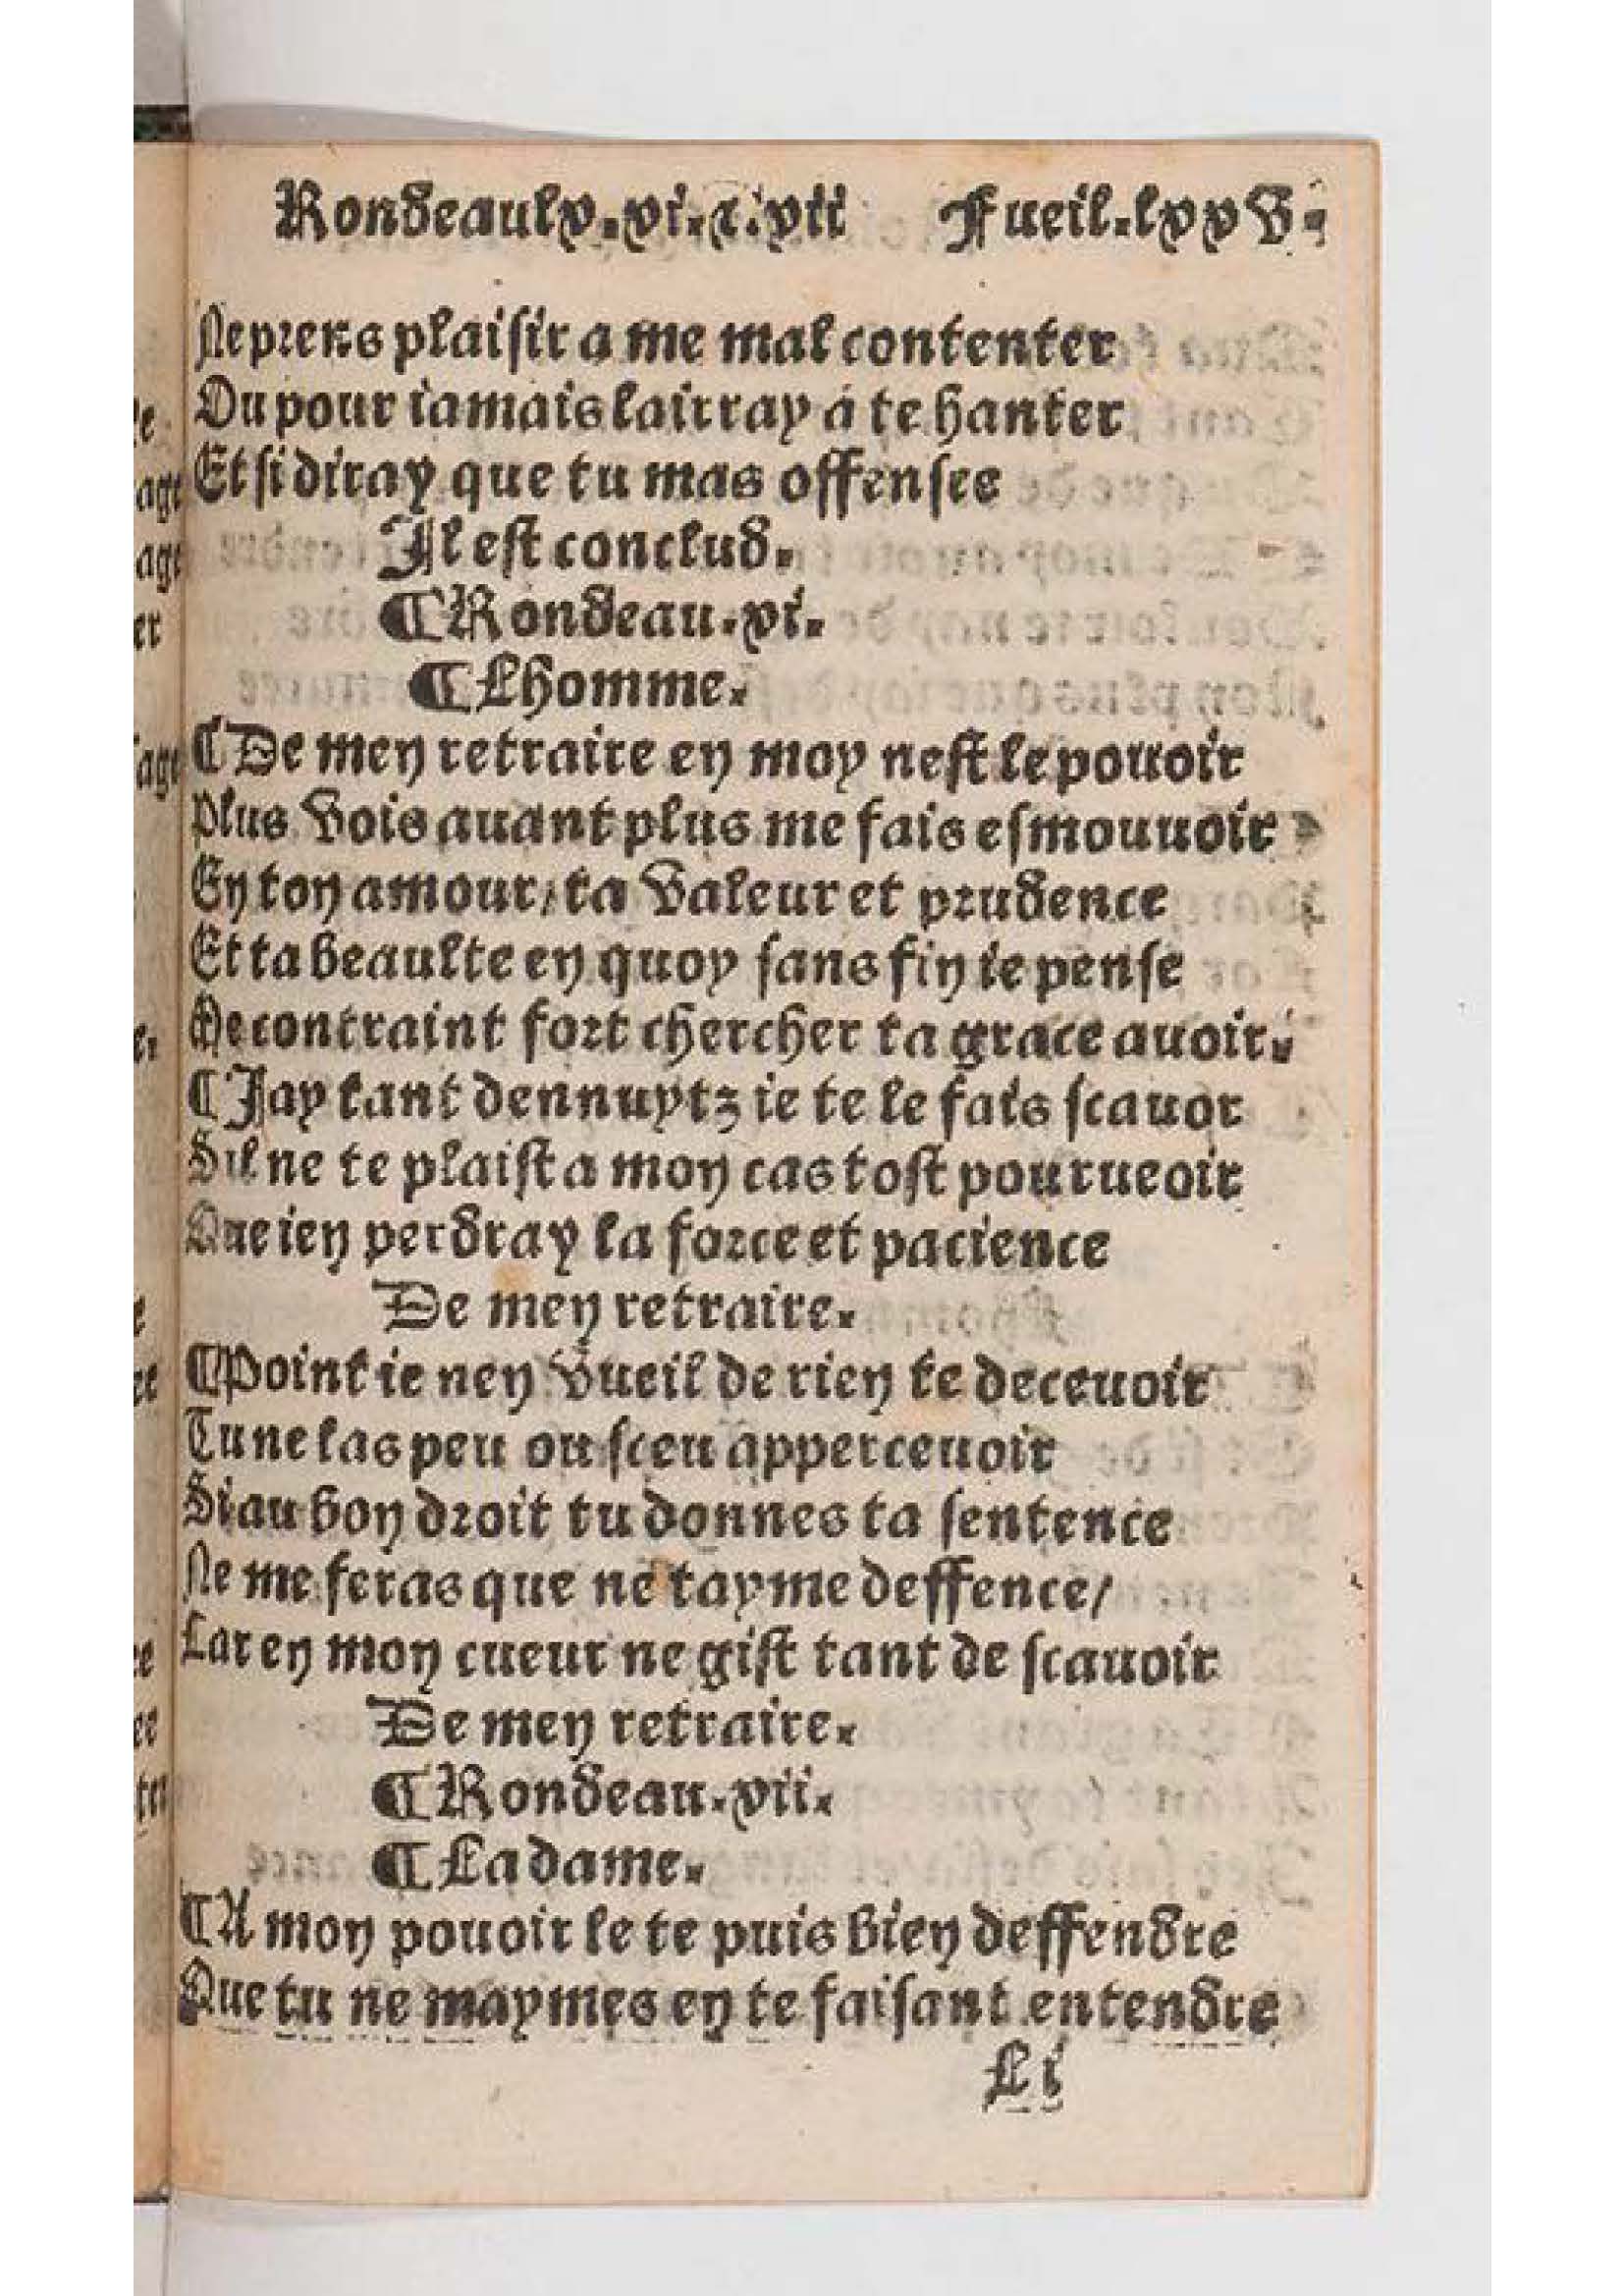 Rondeaulx.vi.⁊.vii Fueil.lxxv.
Ne prens plaisir a me mal contenter
Ou pour iamais lairray a te hanter
Et si diray que tu mas offensee
Il est conclud.
¶Rondeau.vi.
¶Lhomme.
¶De men retraire en moy nest le pouoir
Plus vois auant plus me fais esmouuoir
En ton amour/ta valeur et prudence
Et ta beaulte en quoy sans fin ie pense
Me contraint fort chercher ta grace auoir.
¶Jay tant dennuytz ie te le fais scauor
Sil ne te plaist a mon cas tost pourueoir
Que ien perdray la force et pacience
De men retraire.
¶Point ie nen vueil de rien te deceuoir
Tu ne las peu ou sceu apperceuoir
Si au bon droit tu donnes ta sentence
Ne me feras que ne tayme deffence/
Car en mon cueur ne gist tant de scauoir
De men retraire.
¶Rondeau.vii.
¶La dame.
¶A mon pouoir le te puis bien deffendre
Que tu ne maymes en te faisant entendre
Li